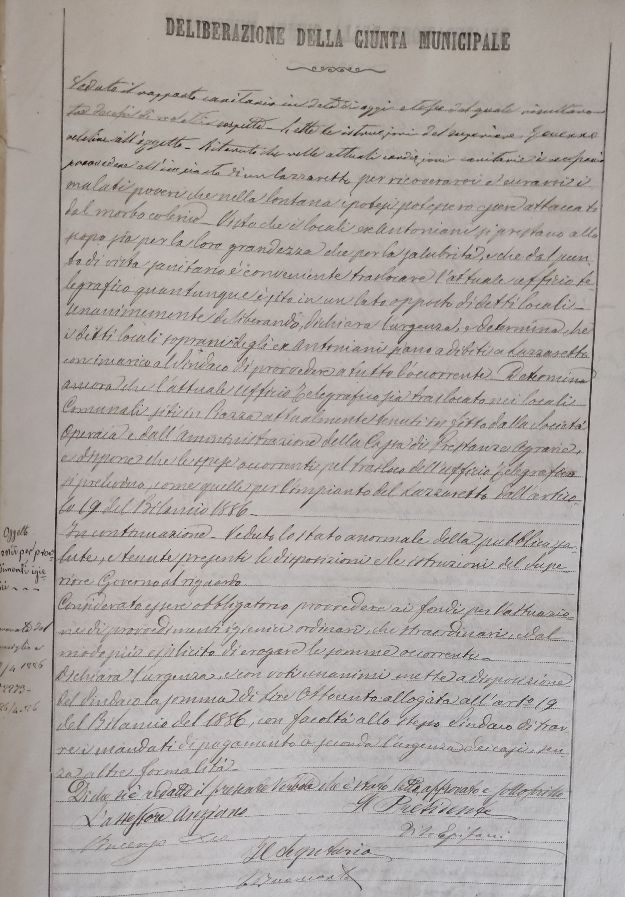 DELIBERAZIONE DELLA GIUNTA MUNICIPALE
Veduto il rapporto sanitario in data di oggi stesso dal quale risultano
tre decessi di sospetto - Lette le istruzioni del superiore Governo
relative all'oggetto - Ritenuto che nelle attuali condizioni sanitarie è necessario
provvedere all'impianto di un Lazzaretto per ricoverarvi e curarvi i
malati poveri che nella lontana ipotesi potessero essere attaccati
dal morbo colerico - Visto che i locali ex Antoniani si prestano allo
scopo sia per la loro grandezza che per la salubrità, e che dal pun
to di vista sanitario è conveniente traslocare l'attuale ufficio te
legrafico quantunque sito in un lato opposto di detti locali -
unanimemente deliberando, dichiara l'urgenza, e determina che
i detti locali soprani degli ex Antoniani siano adibiti a Lazzaretto
con incarico al Sindaco di provvedere a tutto l'occorrente - Determina
ancora che l'attuale Ufficio Telegrafico sia traslocato nei locali
Comunali siti in Piazza attualmente tenuti in fitto dalla Società
Operaia e dall'Amministrazione della Cassa di Prestanze Agrarie,
e dispone che le spese occorrenti pel trasloco dell'ufficio Telegrafico
si prelevino, come quelle per l'impianto del Lazzaretto dall'artico
lo 19 del Bilancio 1886 -
Oggetto
In continuazione - Veduto lo stato anormale della pubblica sa
lute, e tenute presenti le disposizioni e le istruzioni del Supe
riore Governo al riguardo
Considerato essere obbligatorio provvedere ai fondi per l'attuazio
ne di provvedimenti igienici ordinari, che straordinari, e dal
modo più esplicito di erogare le somme occorrenti -
Dichiara l'urgenza, e con voti unanimi mette a disposizione
del Sindaco la somma di Lire Ottocento allogata all'art° 19
del Bilancio del 1886, con facoltà allo stesso Sindaco di trar
re i mandati di pagamento a seconda l'urgenza dei casi, sen
za altre formalità -
Di che si è redatto il presente Verbale che è stato letto approvato e sottoscritto
L'assessore Anziano Il Presidente
Vincenzo
Il Segretario